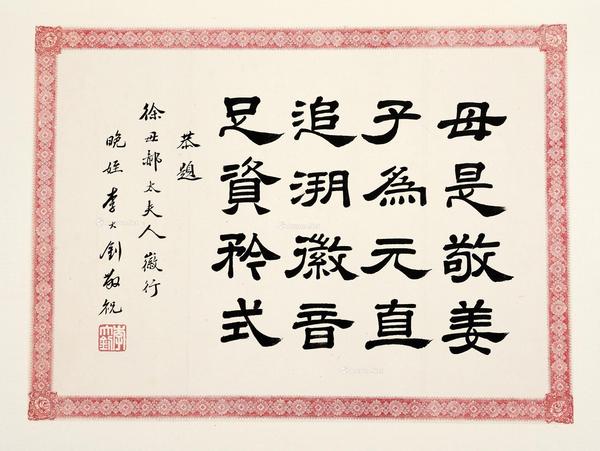 母是敬姜
子為元直
追溯徽音
足資矜式
恭題
徐母郝太夫人徽行
晚姪李大釗敬祝